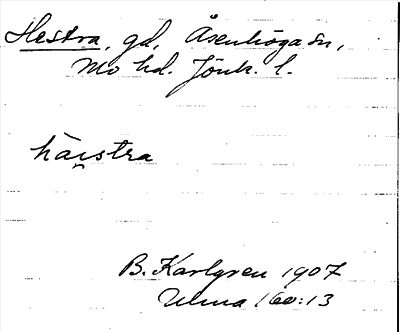 Hestra, gd, Åsenhöga sn,
Mo hd. Jönk. l.
häi̯stra
B. Karlgren 1907
Ulma 160:13